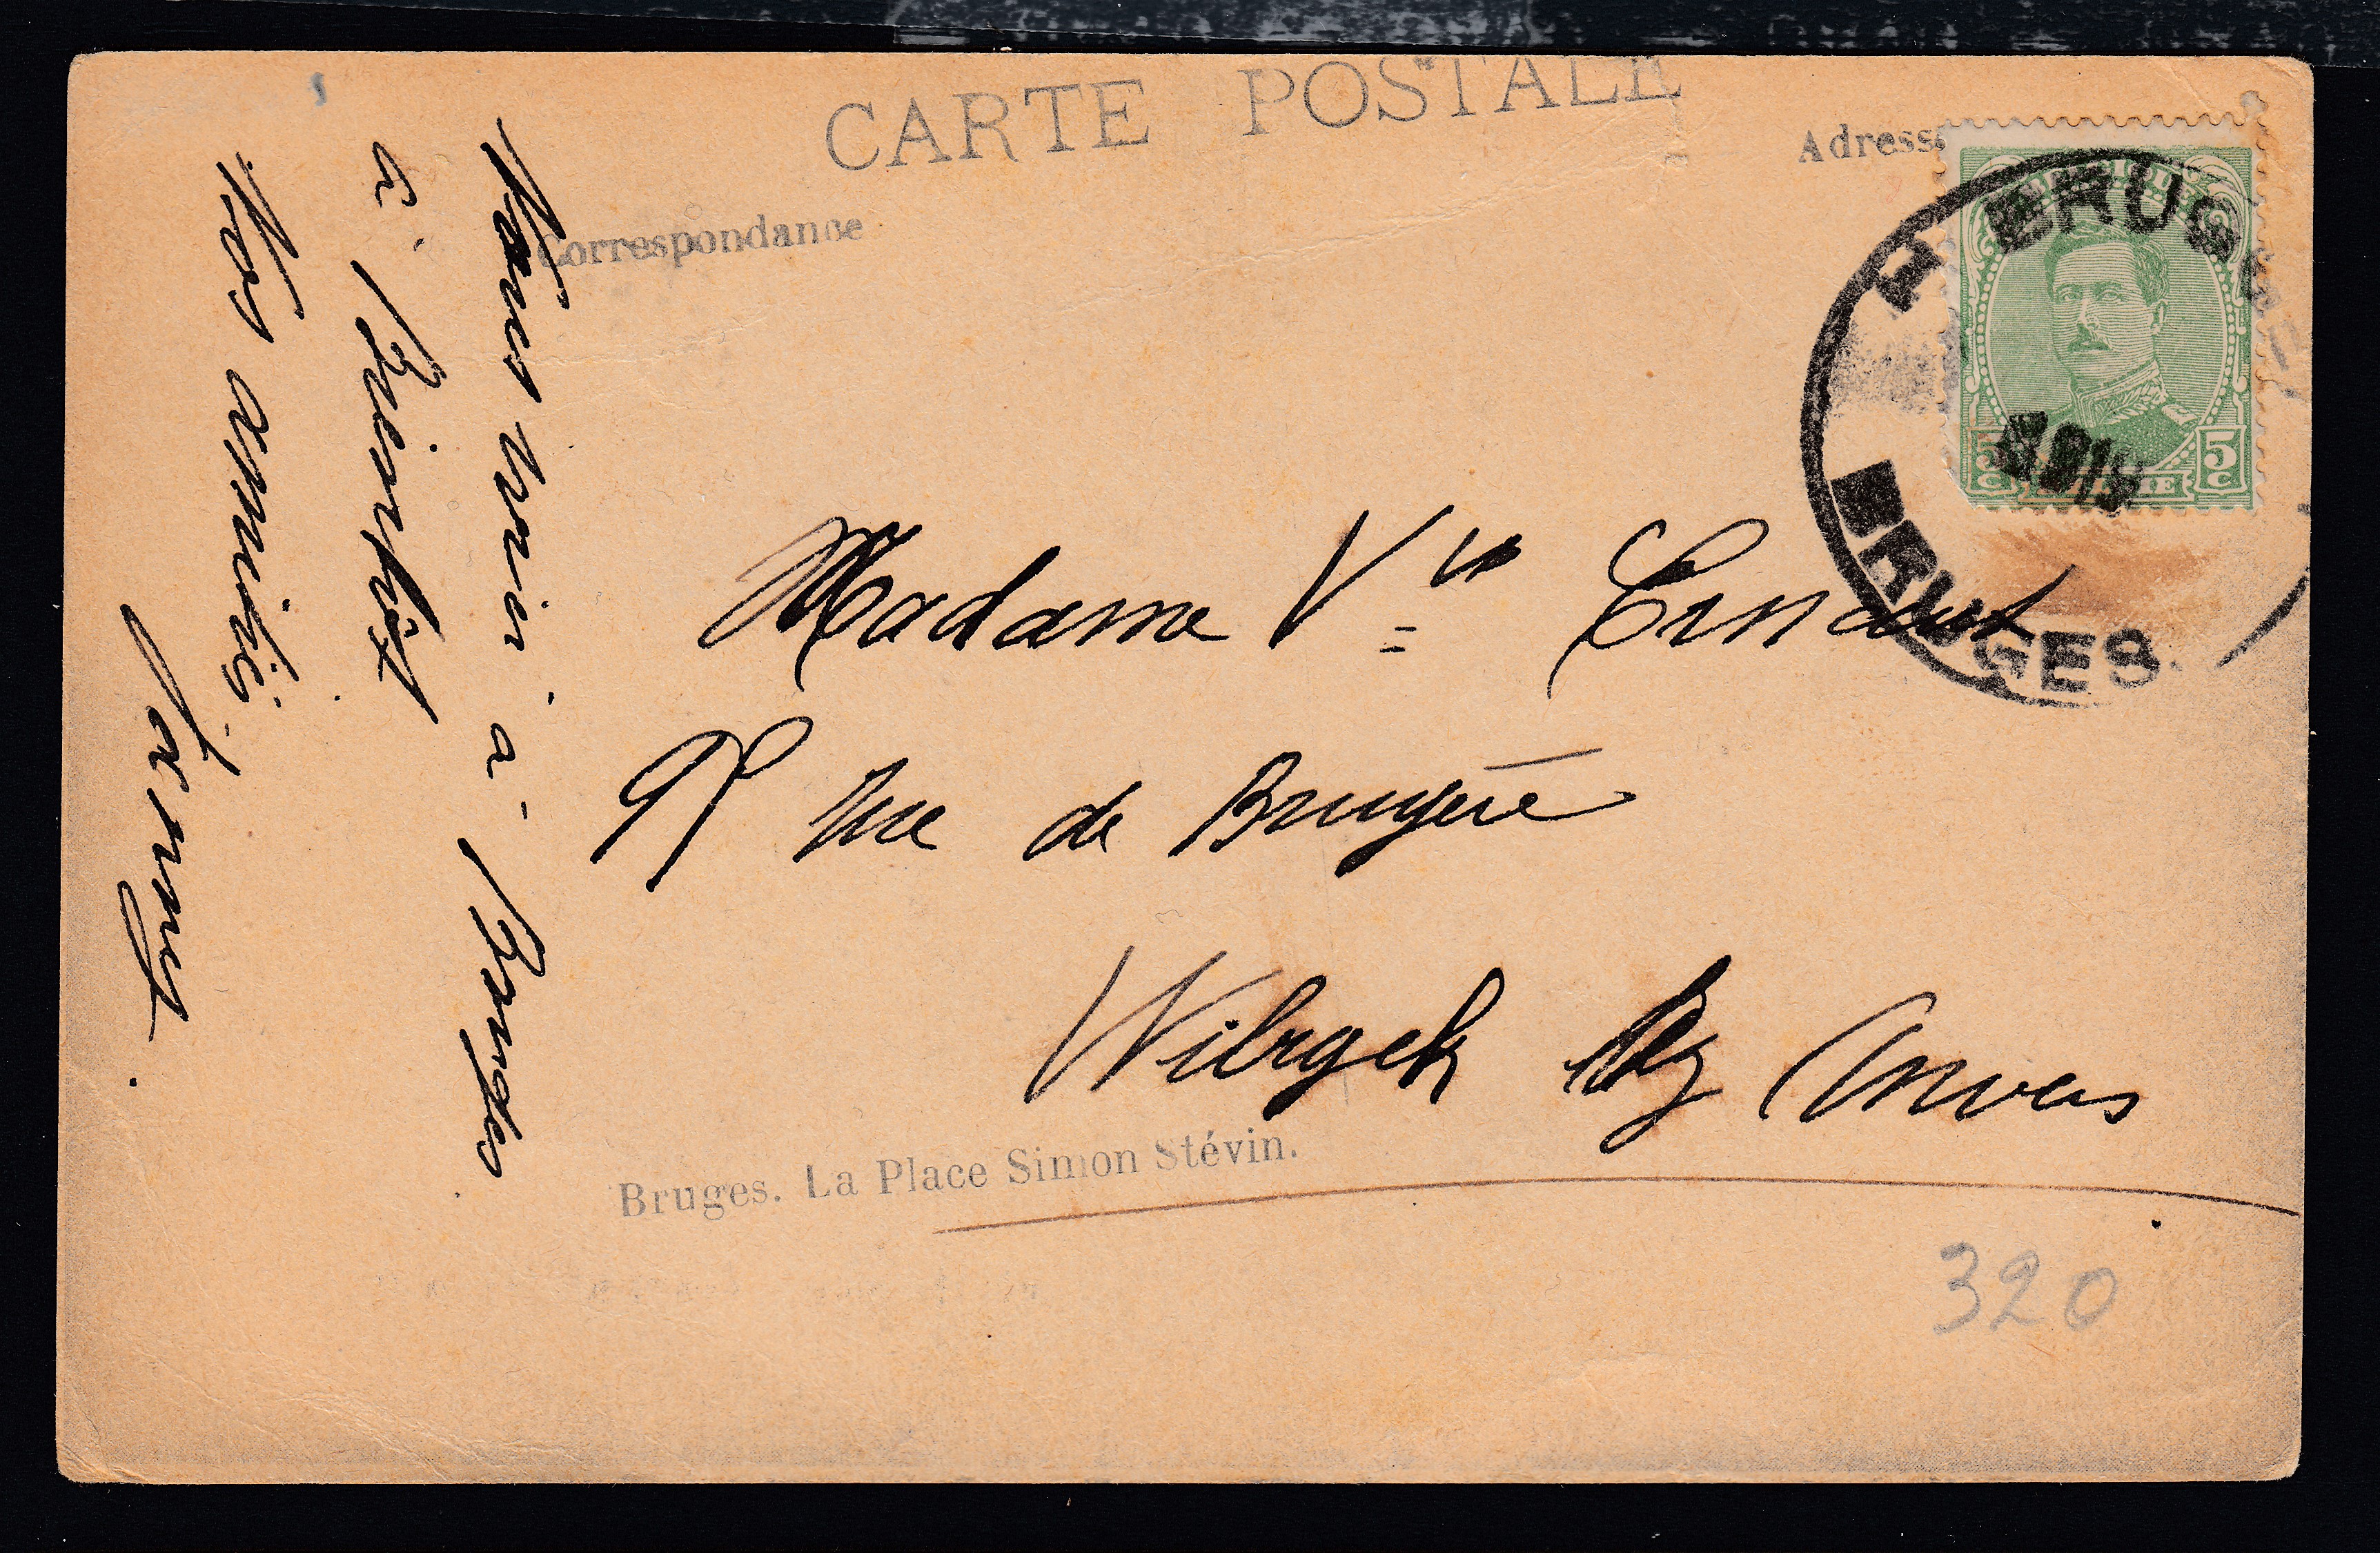 CARTE POSTALE
Correspondance
Adresse
BRUG
5 C 5 C
BRUGES
Nous voici à Bruges
à Bientôt
Vos amitiés
Fanny.
Madame Vve
98 rue de Bruyère
Wilryck lez Anvers
Bruges. La Place Simon Stévin.
320